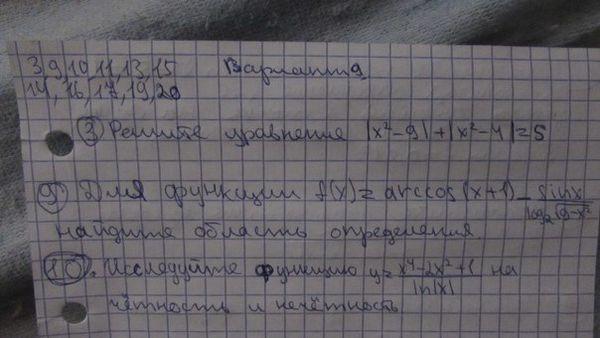 3,9,10,11,13,15 Вариант 9
14, 16, 17, 19, 20
③ Решите уравнение |x²-9|+|x²-4|=5
⑨ Для функции f(x)=arccos(x+1)-sinx/log₂(9-x²)
найдите область определения.
⑩. Исследуйте функцию y=x⁴-2x²+1/ln|x| на
чётность и нечётность